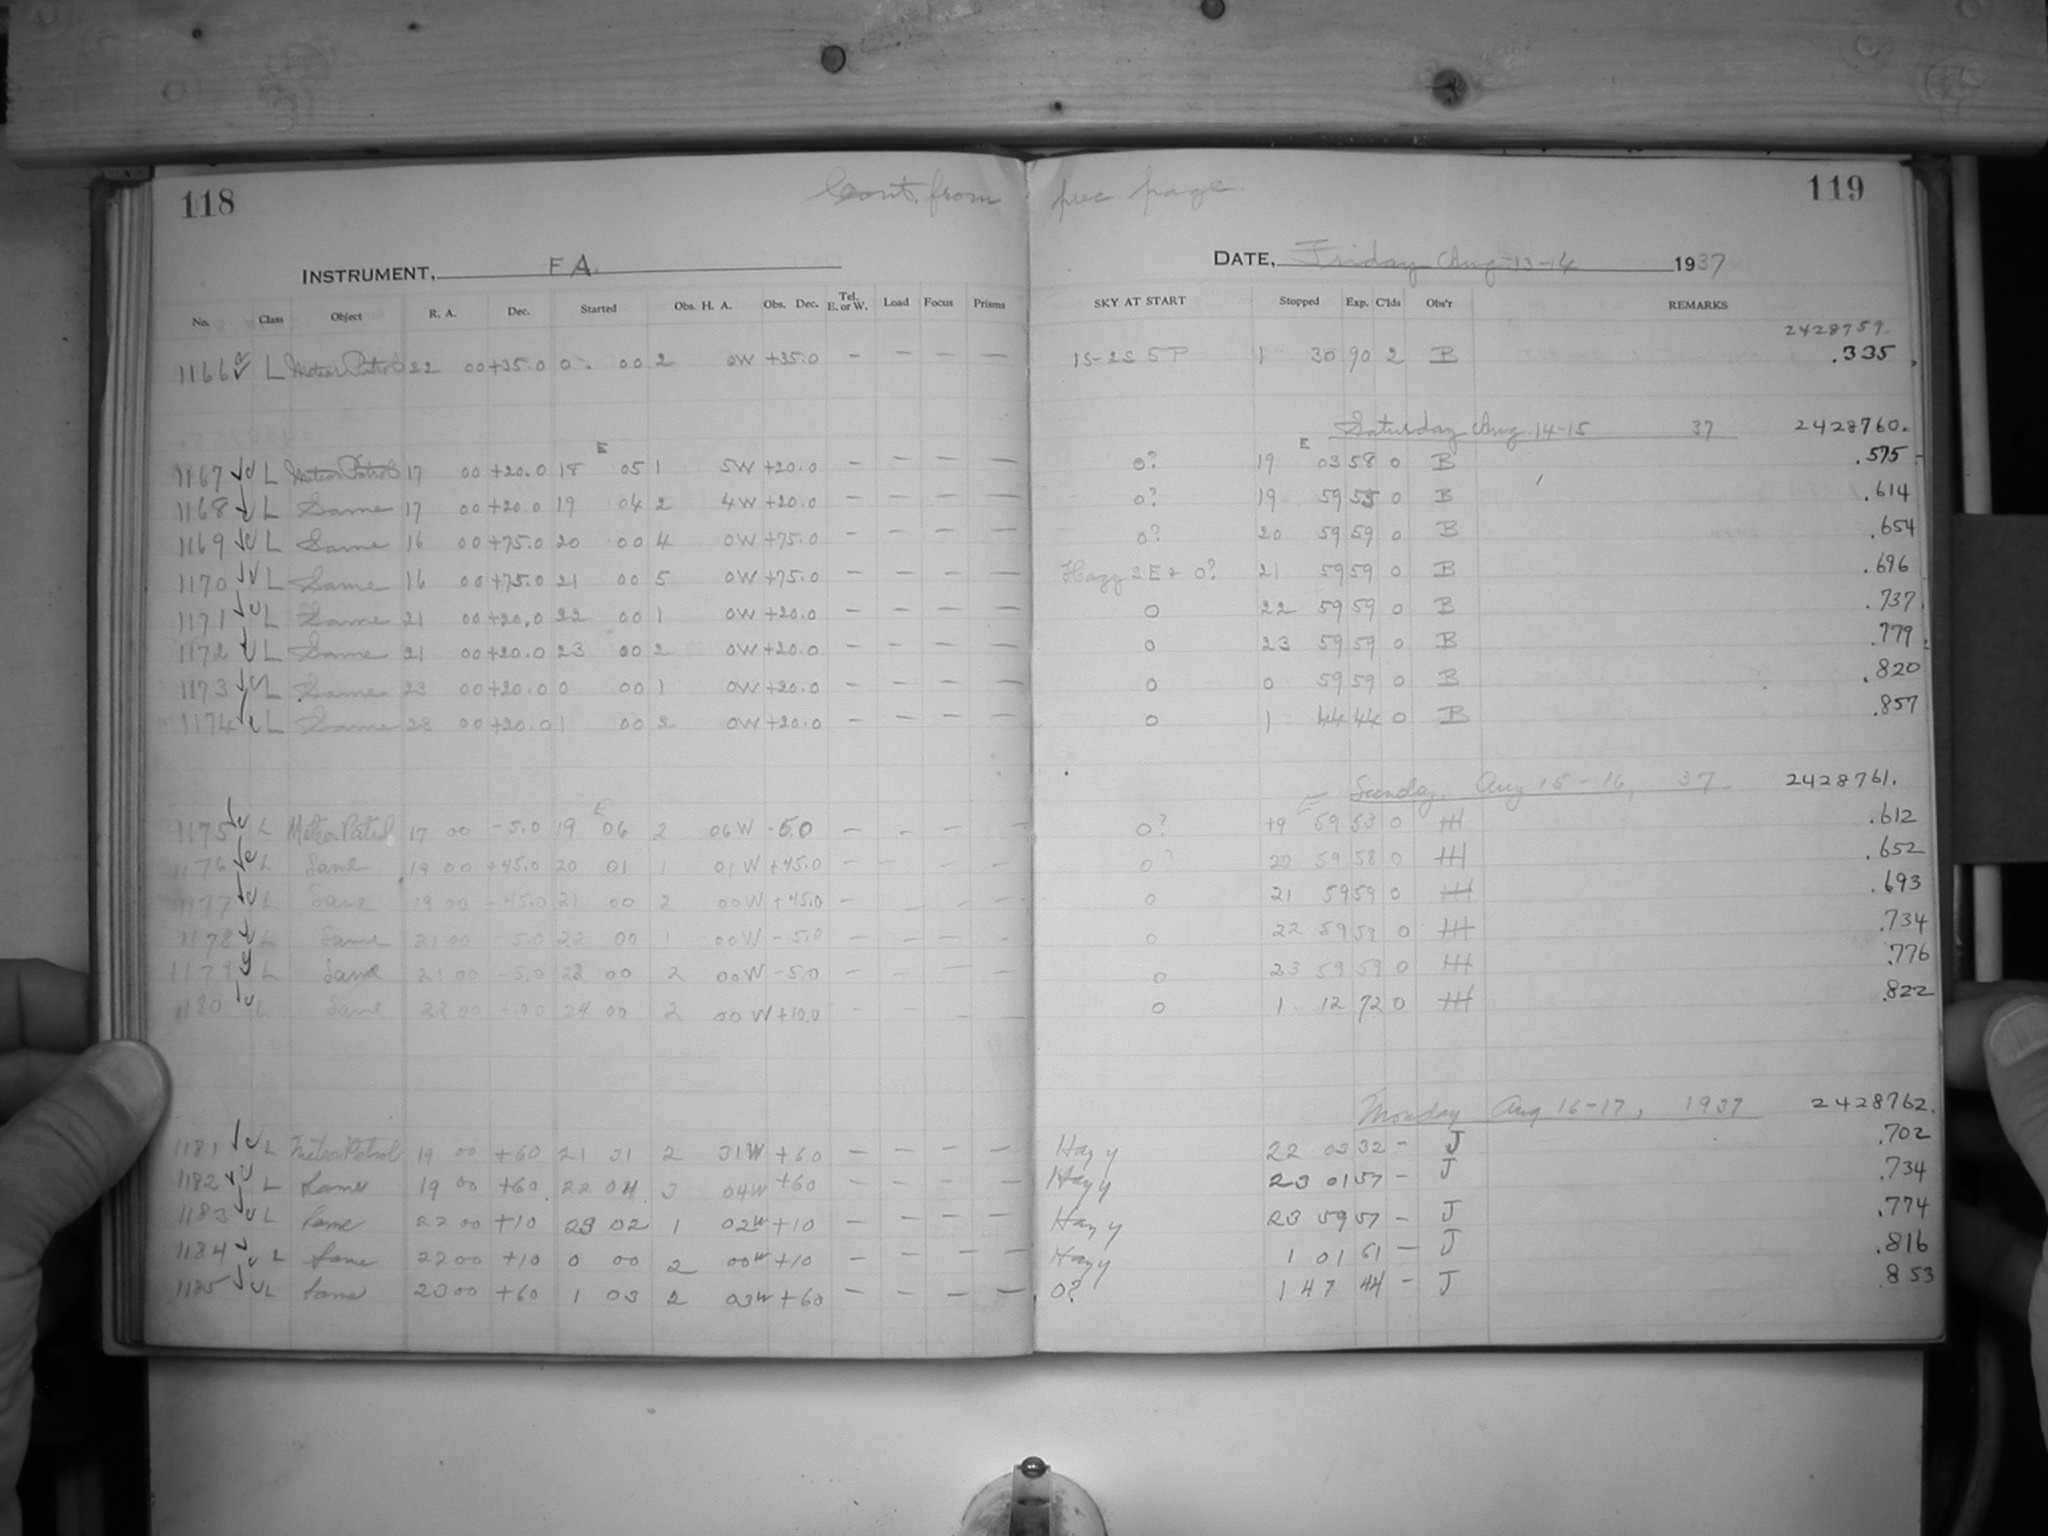 118 Cont. from prec. page 119
INSTRUMENT, F A. DATE, Friday Aug. 13-14 1937
No. Class Object R. A. Dec. Started Obs. H. A. Obs. Dec. Tel. E. or W. Load Focus Prisms SKY AT START Stopped Exp. C'lds Obs'r REMARKS
2428759.
1166 L Meteor Patrol 22 00 +35.0 0 00 2 0W +35.0 - - - - 1S-2S 5P 1 30 90 2 B .335
Saturday Aug. 14-15 37 2428760.
E E
1167 L Meteor Patrol 17 00 +20.0 18 05 1 5W +20.0 - - - - 0? 19 03 58 0 B .575
1168 L Same 17 00 +20.0 19 04 2 4W +20.0 - - - - 0? 19 59 55 0 B .614
1169 L Same 16 00 +75.0 20 00 4 0W +75.0 - - - - 0? 20 59 59 0 B .654
1170 L Same 16 00 +75.0 21 00 5 0W +75.0 - - - - Hazy SE + 0? 21 59 59 0 B .696
1171 L Same 21 00 +20.0 22 00 1 0W +20.0 - - - - 0 22 59 59 0 B .737
1172 L Same 21 00 +20.0 23 00 2 0W +20.0 - - - - 0 23 59 59 0 B .779
1173 L Same 23 00 +20.0 0 00 1 0W +20.0 - - - - 0 0 59 59 0 B .820
1174 L Same 23 00 +20.0 1 00 2 0W +20.0 - - - - 0 1 44 44 0 B .857
Sunday, Aug 15-16, 37 2428761.
E E
1175 L Meteor Patrol 17 00 -5.0 19 06 2 06W -5.0 - - - - 0? 19 59 53 0 HH .612
1176 L Same 19 00 +45.0 20 01 1 01W +45.0 - - - - 0? 20 59 58 0 HH .652
1177 L Same 19 00 +45.0 21 00 2 00W +45.0 - - - - 0 21 59 59 0 HH .693
1178 L Same 21 00 -5.0 22 00 1 00W -5.0 - - - - 0 22 59 59 0 HH .734
1179 L Same 21 00 -5.0 23 00 2 00W -5.0 - - - - 0 23 59 59 0 HH .776
1180 L Same 22 00 +10.0 24 00 2 00W +10.0 - - - - 0 1 12 72 0 HH .822
Monday Aug 16-17, 1937 2428762.
1181 L Meteor Patrol 19 00 +60 21 31 2 31W +60 - - - - Hazy 22 03 32 - J .702
1182 L Same 19 00 +60 22 04 3 04W +60 - - - - Hazy 23 01 57 - J .734
1183 L Same 22 00 +10 23 02 1 02W +10 - - - - Hazy 23 59 57 - J .774
1184 L Same 22 00 +10 0 00 2 00W +10 - - - - Hazy 1 01 61 - J .816
1185 L Same 23 00 +60 1 03 2 03W +60 - - - - 0? 1 47 44 - J .853